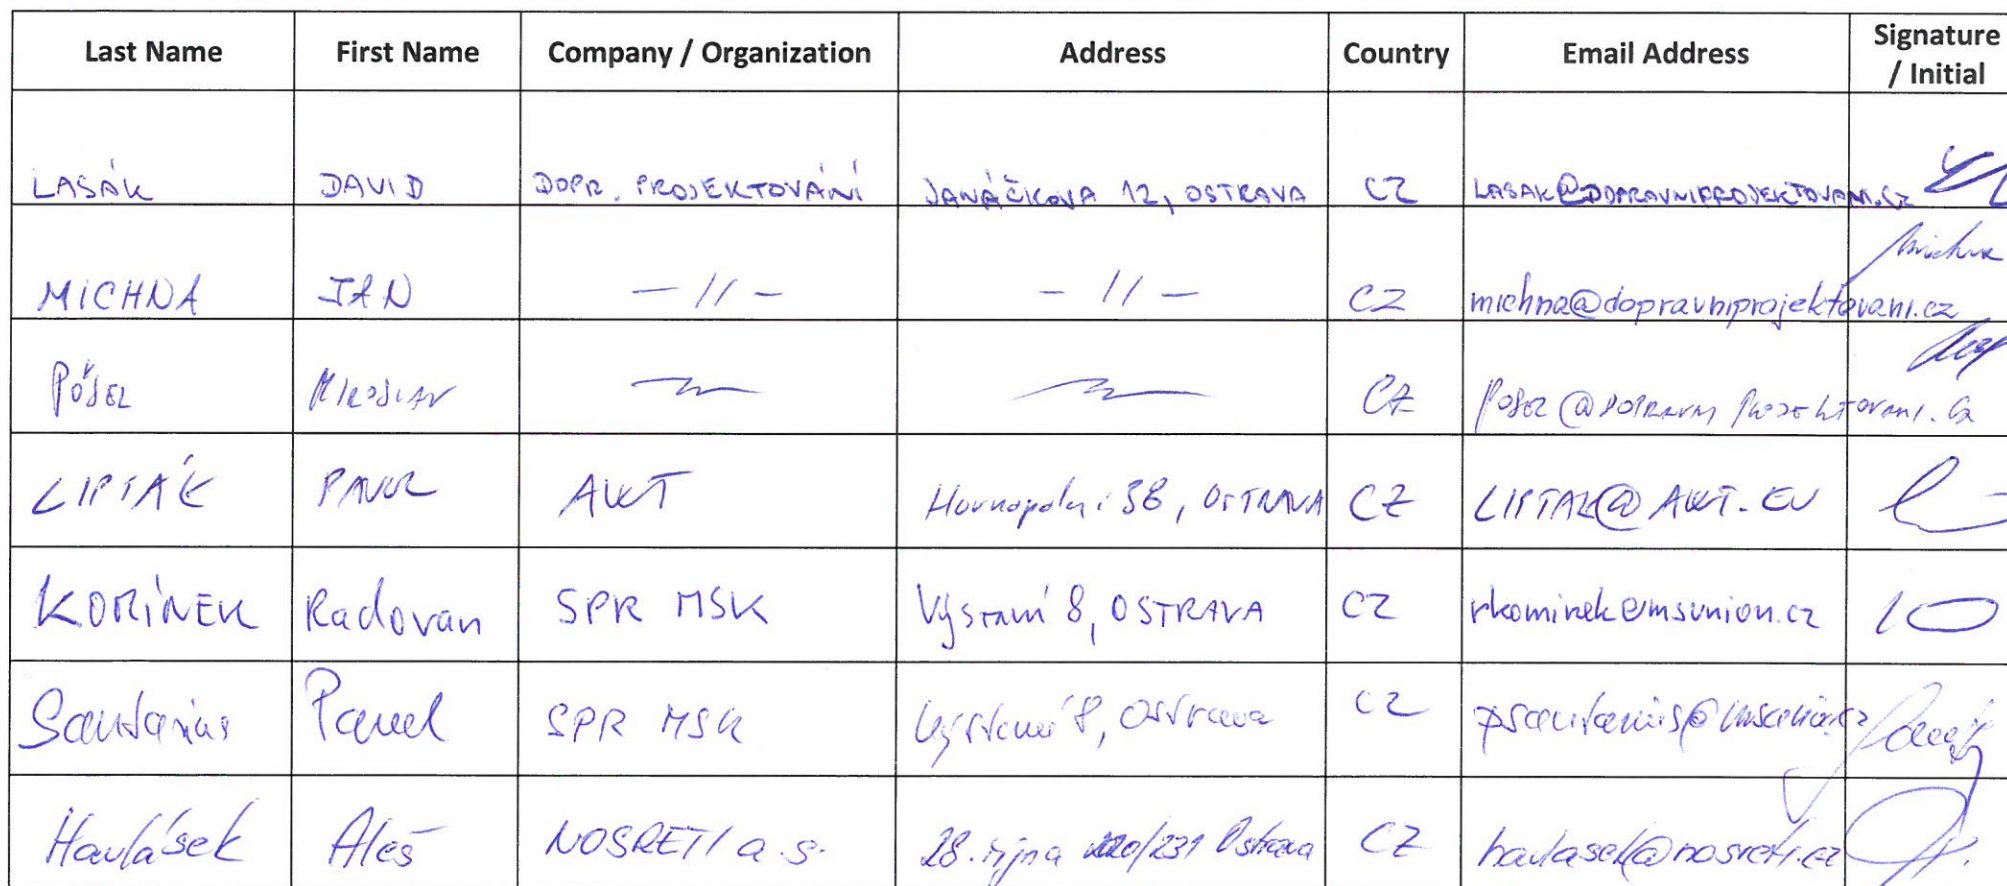 Last Name First Name Company / Organization Address Country Email Address Signature / Initial
LASÁK DAVID DOPR. PROJEKTOVÁNÍ JANÁČKOVA 12, OSTRAVA CZ LASAK@DOPRAVNIPROJEKTOVANI.CZ
MICHNA JAN — // — — // — CZ michna@dopravniprojektovani.cz Michna
MIROSLAV CZ
LIPTÁK PAVOL AWT Hornopolní 38, OSTRAVA CZ LIPTAK@AWT.EU
KOMÍNEK Radovan SPR MSK Výstavní 8, OSTRAVA CZ rkominek@msunion.cz
Santarius Pavel SPR MSK Výstavní 8, Ostrava CZ psantarius@msunion.cz
Havlásek Aleš NOSRETI a.s. 28. října Ostrava CZ havlasek@nosreti.cz